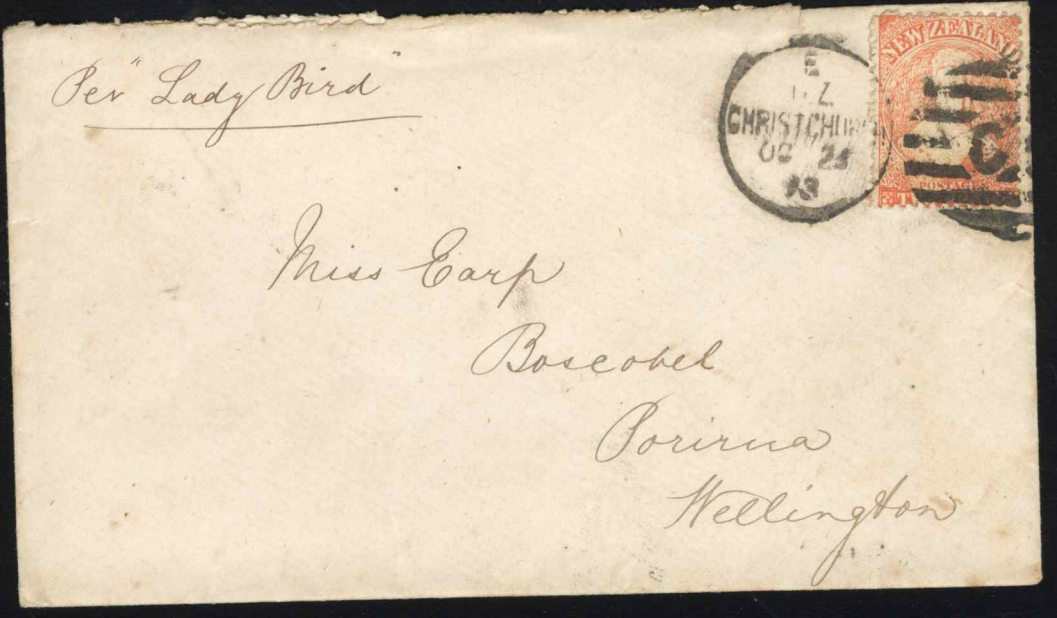 Per "Lady Bird"
E
N.Z
CHRISTCHURCH
OC 25
73
NEW ZEALAND
C
POSTAGE
Miss Earp
Boscobel
Porirua
Wellington